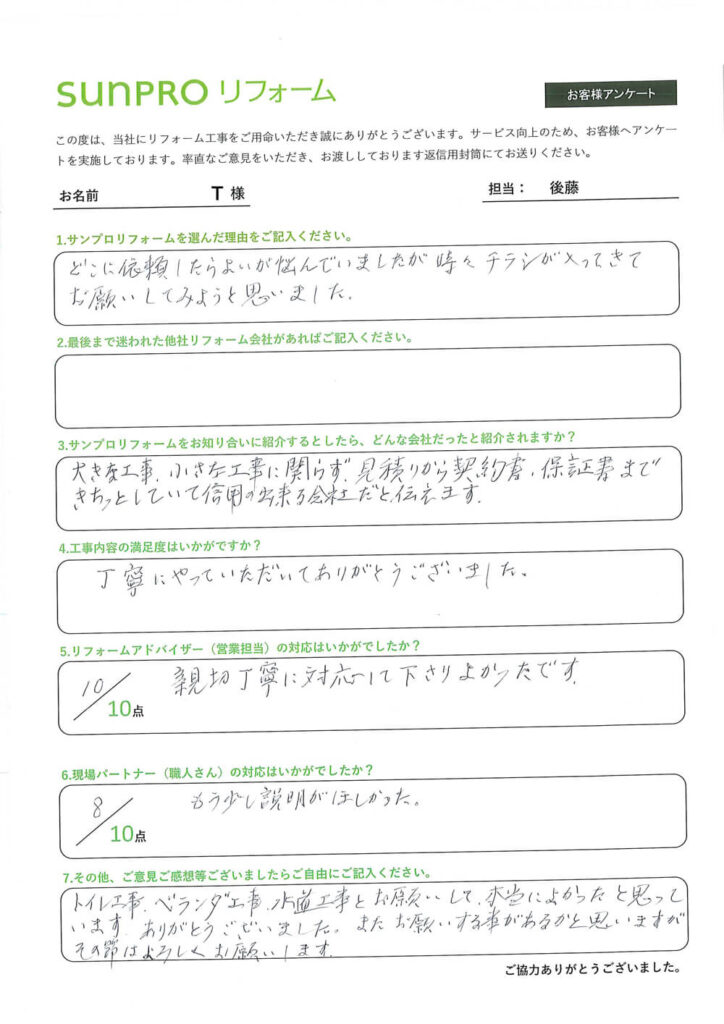 SUNPRO リフォーム
お客様アンケート
この度は、当社にリフォーム工事をご用命いただき誠にありがとうございます。サービス向上のため、お客様へアンケー
トを実施しております。率直なご意見をいただき、お渡ししております返信用封筒にてお送りください。
お名前 T 様
担当： 後藤
1.サンプロリフォームを選んだ理由をご記入ください。
どこに依頼したらよいか悩んでいましたが時々チラシが入ってきて
お願いしてみようと思いました.
2.最後まで迷われた他社リフォーム会社があればご記入ください。
3.サンプロリフォームをお知り合いに紹介するとしたら、どんな会社だったと紹介されますか？
大きな工事、小さな工事に関らず、見積りから契約書、保証書まで
きちっとしていて信用の出来る会社だと伝えます.
4.工事内容の満足度はいかがですか？
丁寧にやっていただいてありがとうございました。
5.リフォームアドバイザー（営業担当）の対応はいかがでしたか？
10/10点
親切丁寧に対応して下さりよかったです.
6.現場パートナー（職人さん）の対応はいかがでしたか？
8/10点
もう少し説明がほしかった。
7.その他、ご意見ご感想等ございましたらご自由にご記入ください。
トイレ工事、ベランダ工事、水道工事とお願いして、本当によかったと思って
います. ありがとうございました。またお願いする事があるかと思いますが
その節はよろしくお願いします.
ご協力ありがとうございました。